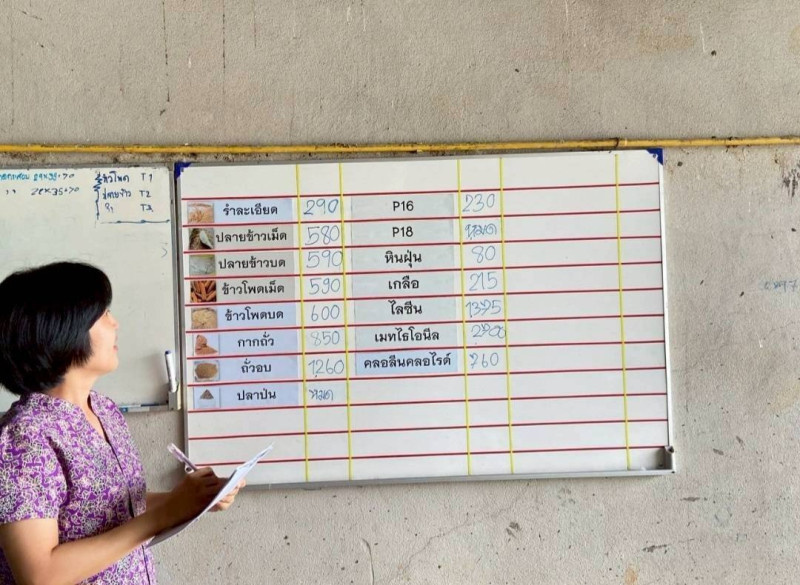 ข้าวโพด T1
ปลายข้าว T2
รำ
รำละเอียด 290 P16 230
ปลายข้าวเม็ด 580 P18 หมด
ปลายข้าวบด 590 หินฝุ่น 80
ข้าวโพดเม็ด 590 เกลือ 215
ข้าวโพดบด 600 ไลซีน 1375
กากถั่ว 850 เมทไธโอนีล
ถั่วอบ 1,260 คลอลีนคลอไรด์ 760
ปลาป่น หมด